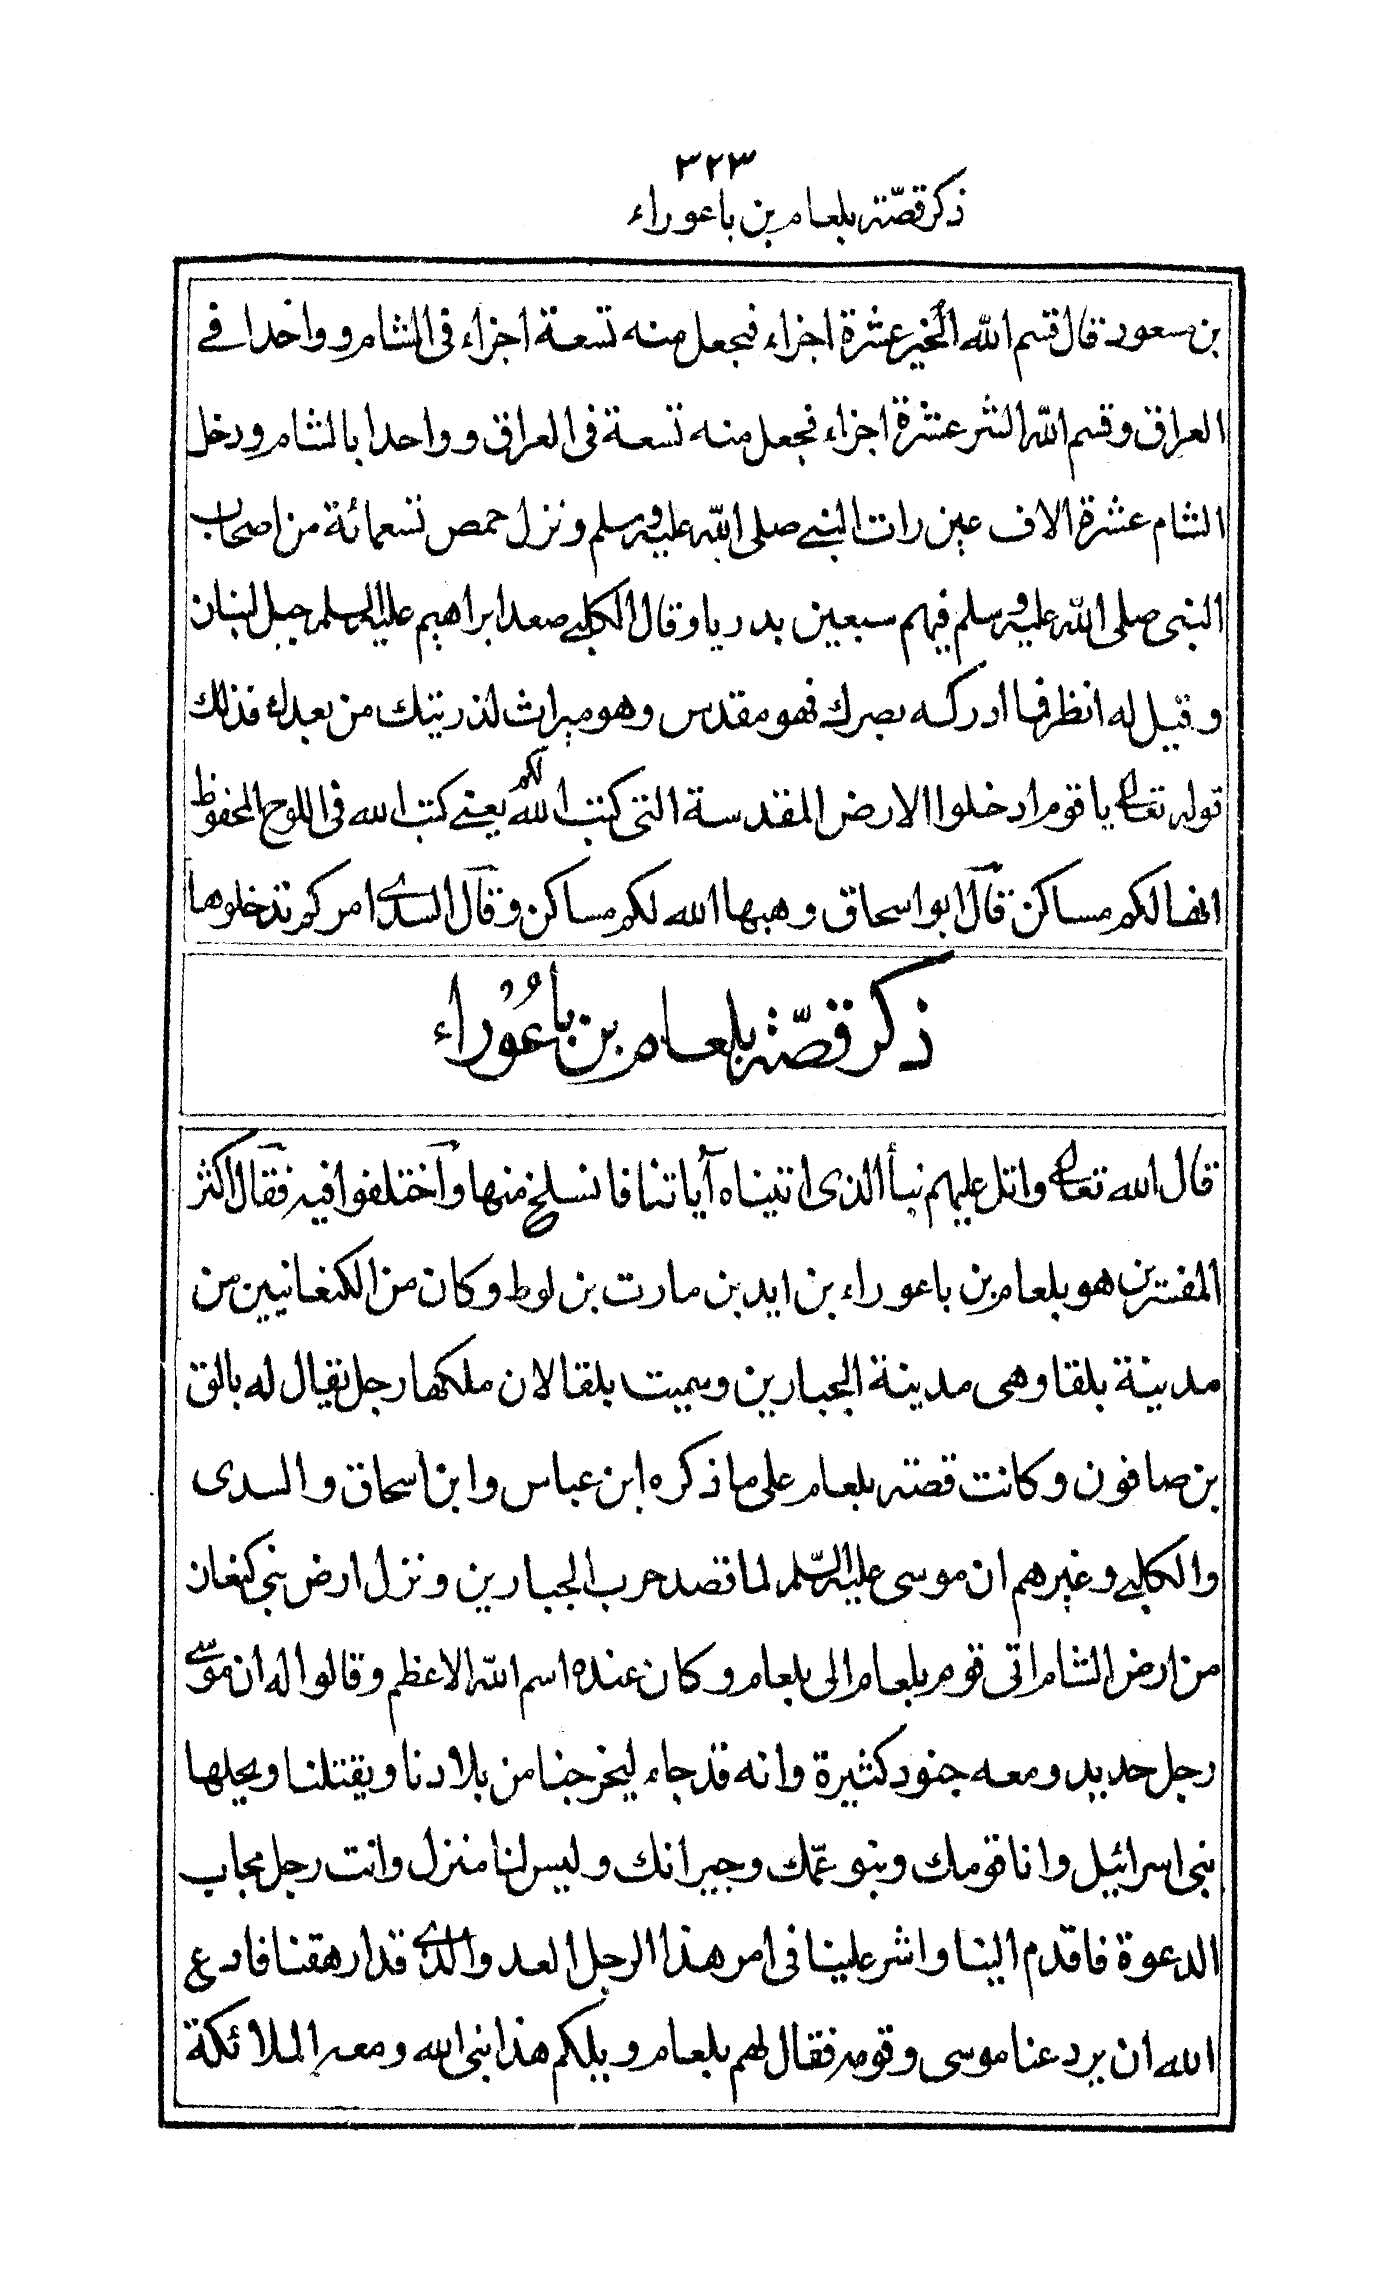 ٣٢٣
ذكر قصّة بلعام بن باعوراء
بن مسعود قال قسم الله الخير عشرة اجزاء فجعل منه تسعة اجزاء فى الشام وواحدا في
العراق وقسم الله الشر عشرة اجزاء فجعل منه تسعة فى العراق وواحدا بالشام ودخل
الشام عشرة الاف عين رات النبي صلى الله عليه وسلم ونزل حمص تسعمائة من اصحاب
النبى صلى الله عليه وسلم فيهم سبعين بدريا وقال الكلبي صعد ابراهيم عليه السلم جبل لبنان
وقيل له انظر فما ادركه بصرك فهو مقدس وهو ميراث لذريتك من بعدك فذلك
قوله تعالى يا قوم ادخلوا الارض المقدسة التى كتب الله لكم يعني كتب الله فى اللوح المحفوظ
انها لكم مساكن قال ابو اسحاق وهبها الله لكم مساكن وقال السدي امركم بدخلوها
ذكر قصّة بلعام بن باعُوْراء
قال الله تعالى واتل عليهم نبأ الذى اتيناه آياتنا فانسلخ منها واختلفوا فيه فقال اكثر
المفسرين هو بلعام بن باعوراء بن ايد بن مارت بن لوط وكان من الكنعانيين من
مدينة بلقا وهى مدينة الجبارين وسميت بلقا لان ملكها رجل يقال له بالق
بن صافون وكانت قصة بلعام على ما ذكره ابن عباس وابن اسحاق والسدى
والكلبي وغيرهم ان موسى عليه السّلم لما قصد حرب الجبارين ونزل ارض بنى كنعان
من ارض الشام اتى قوم بلعام الى بلعام وكان عنده اسم الله الاعظم وقالوا له ان موسى
رجل حديد ومعه جنود كثيرة وانه قد جاء ليخرجنا من بلادنا ويقتلنا ويحلها
بنى اسرائيل وانا قومك وبنو عمّك وجيرانك وليس لنا منزل وانت رجل مجاب
الدعوة فاقدم الينا واشر علينا فى امر هذا الرجل العدو الذي قد ارهقنا فادع
الله ان يرد عنا موسى وقومه فقال لهم بلعام ويلكم هذا نبى الله ومعه الملائكة